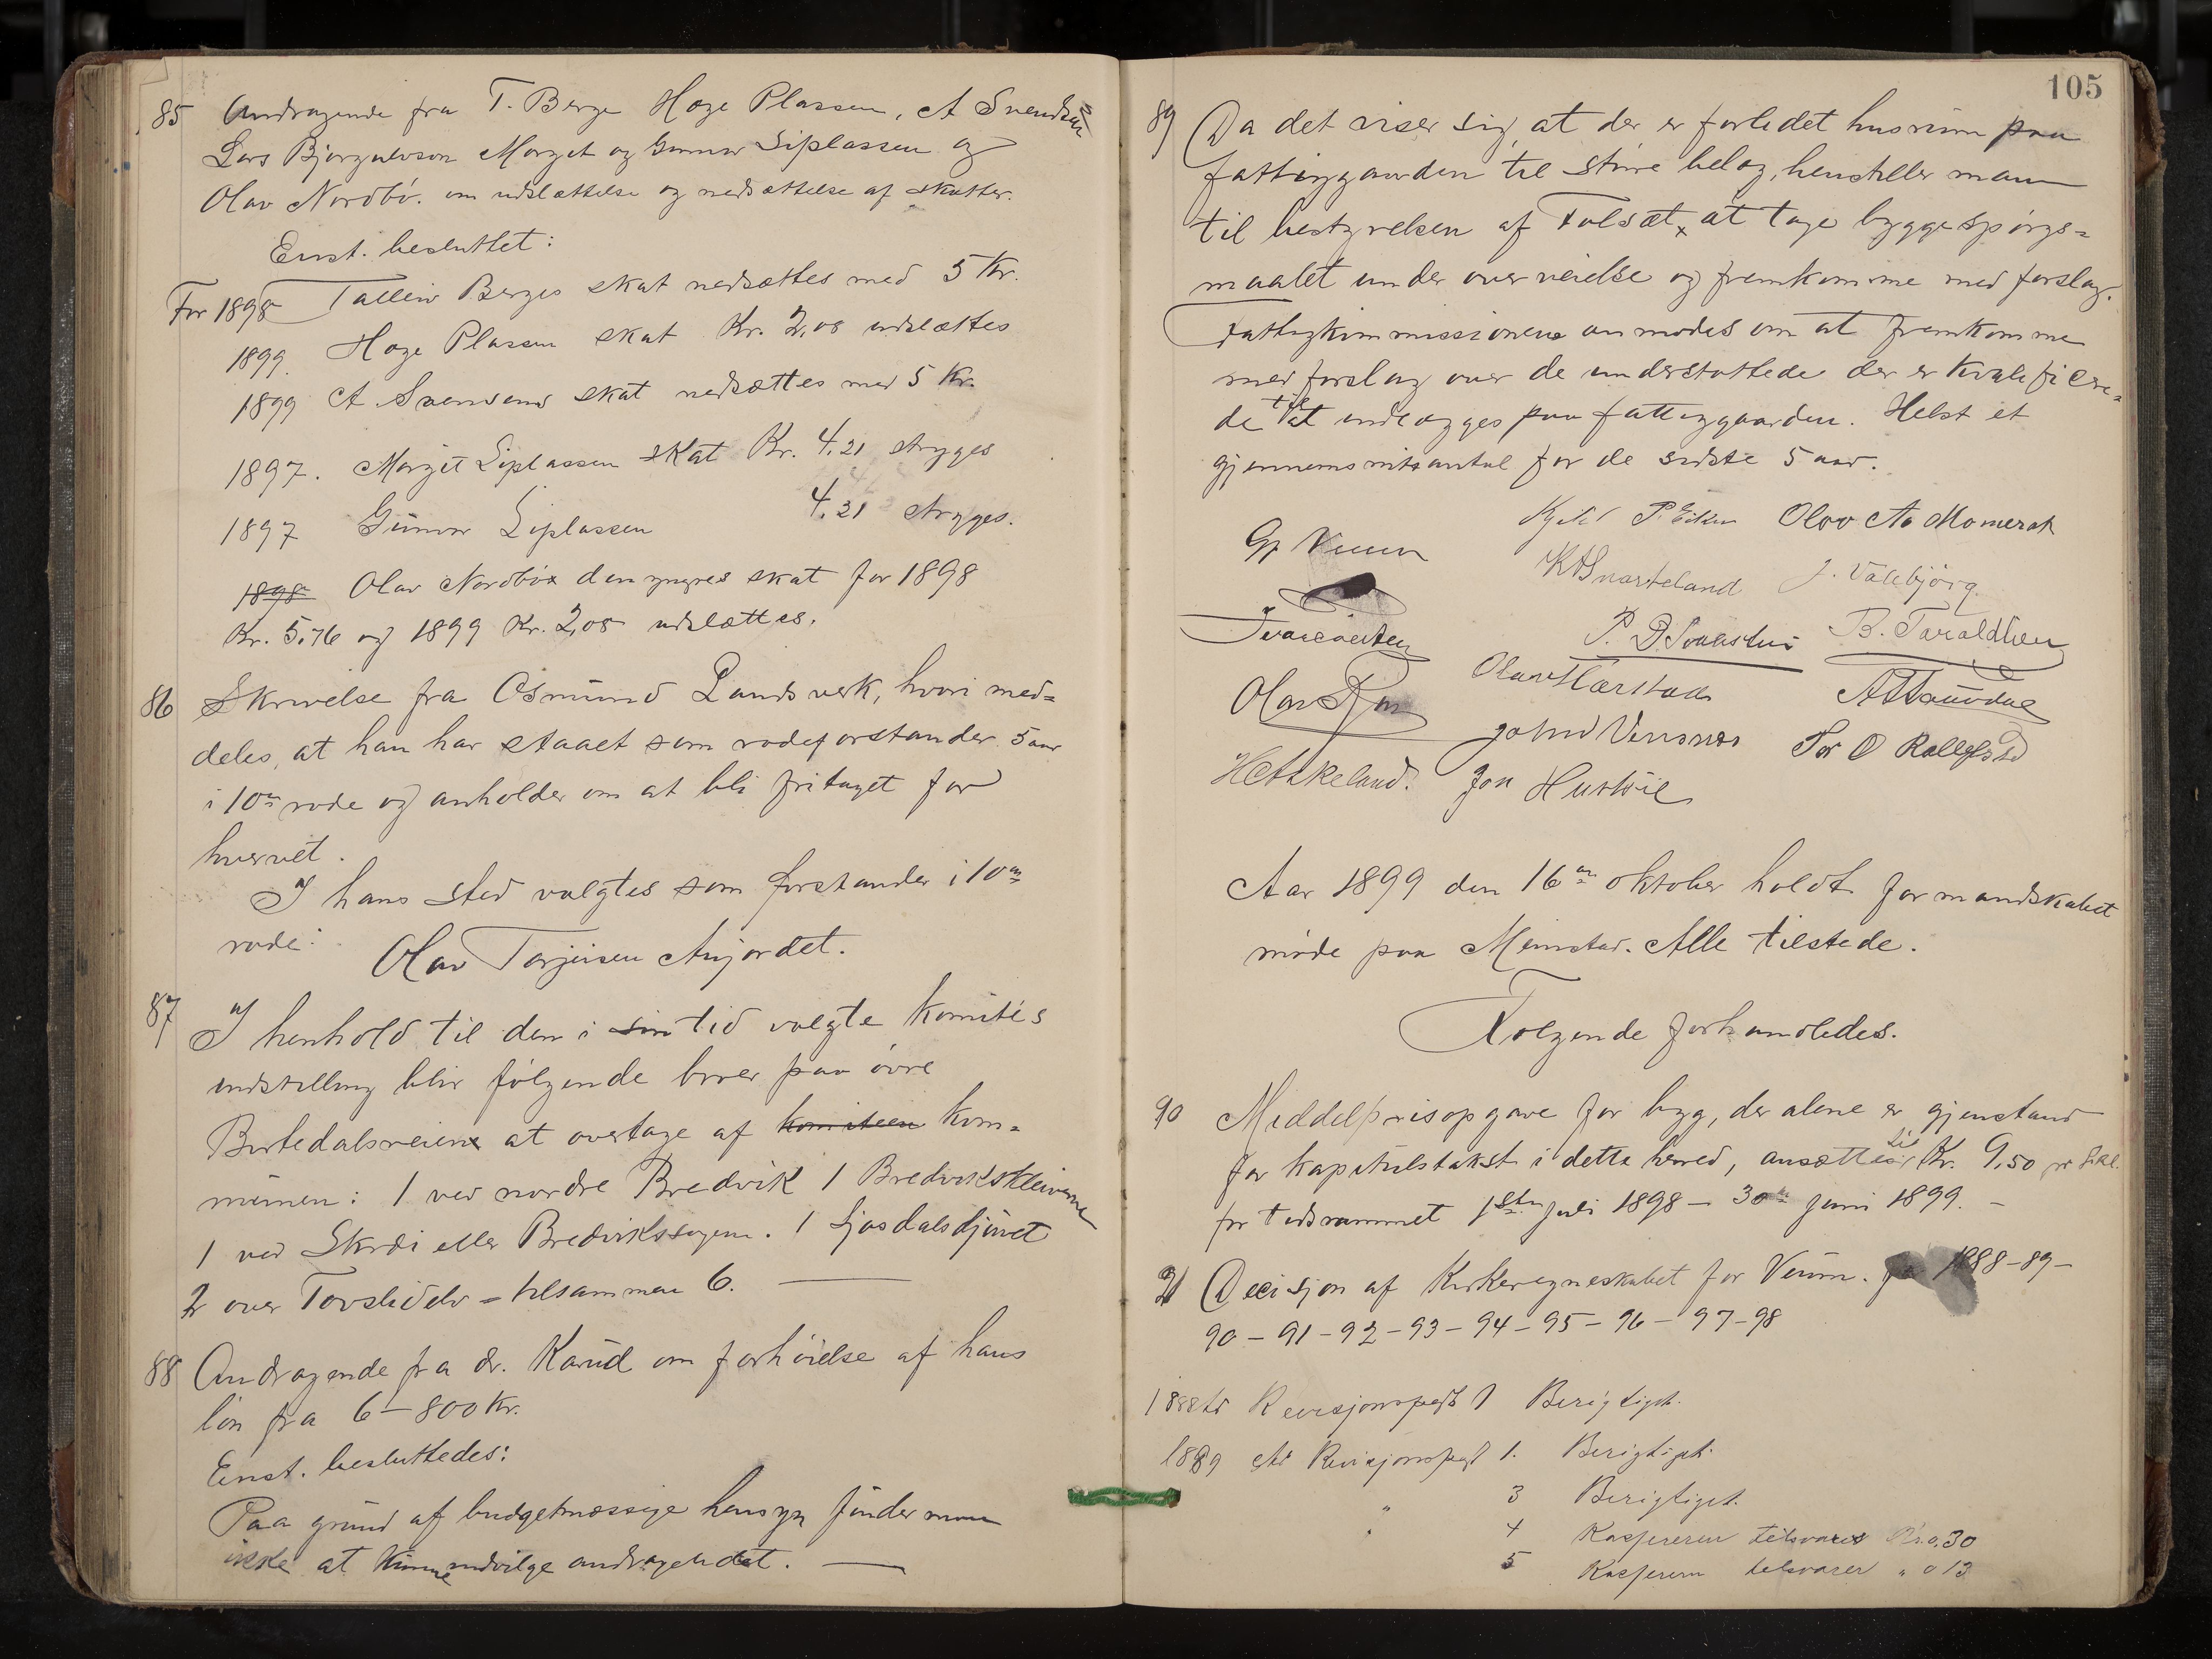 85 Andragende fra T. Berge Hoge Plassen, A Svendsen
Lars Bjørgulvson Morget og Gunnar Liplassen og
Olav Nordbö. om udslættelse og nedsættelse af skatter.
Enst. besluttet:
For 1898 Talleiv Berges skat nedsættes med 5 Kr.
1899. Hoge Plassen skat Kr. 2,08 udslættes
1899 A. Svensens skat nedsættes med 5 Kr.
1897. Margit Liplassen skat Kr. 4.21 stryges
1897 Gunnar Liplassen 4.21 stryges.
1898 Olav Nordböx den yngres skat for 1898
Kr. 5.76 og 1899 Kr. 2,08 udslættes.
86 Skrivelse fra Osmund Landsverk, hvori med=
deles, at han har staaet som rodeforstander 5 aar
i 10de rode og anholder om at bli fritaget for
hvervet.
I hans sted valgtes som forstander i 10de
rode:
Olav Torjusen Aujordet.
87 I henhold til den i sin tid valgte komités
indstilling blir fölgende broer paa övre
Birtedalsveien at overtage af komiteen kom=
munen: 1 ved nordre Bredvik 1 Bredviksklevene
1 ved Skrdi eller Bredvikssagen. 1 Ljosdalsdjuvet
2 over Tovslidelv = tilsammen 6.
88 Andragende fra dr. Kaurd om forhöielse af hans
lön fra 6-800 Kr.
Enst. besluttedes:
Paa grund af budgetmæssige hensyn finder man
ikke at kunne indvilge andragendet.
105
89 Da det viser sig, at der er forlidet husrum paa
fattiggaarden til större belæg, henstiller man
til bestyrelsen af Folsæt, at tage byggespörgs=
maalet under overveielse og fremkomme med forslag.
Fattigkommissionen anmodes om at fremkomme
med forslag over de understøttede der er kvalificere=
de til at indlægges paa fattiggaarden. Helst et
gjennemsnitsantal for de sidste 5 aar.
Kjetil P. Eikn Olav Aa Momrak
Gj Veum K A Snarteland J. Valebjörg
P. D. B. Taraldlien
Olav Harstad
John Vensnes Tor O Rollefstad
H Askeland. Jon Hustvet
Aar 1899 den 16de oktober holdt formandskabet
möde paa Meinstad. Alle tilstede.
Følgende forhandledes.
90 Middelprisopgave for byg, der alene er gjenstand
for kapitulstakst i dette herred, ansættes til Kr. 9,50 pr hkl.
for tidsrummet 1ste Juli 1898 - 30te Juni 1899. -
91 Decisjon af Kirkeregneskabet for Veum. for 1888-89-
90-91-92-93-94-95-96-97-98
1888 Revisjonspost 1 Berigtiget.
1889 Revisjonspost 1. Berigtiget.
" 3 Berigtiget.
" 4 Kassereren tilsvarer Kr. 0,30
5 Kassereren tilsvarer " 0 13